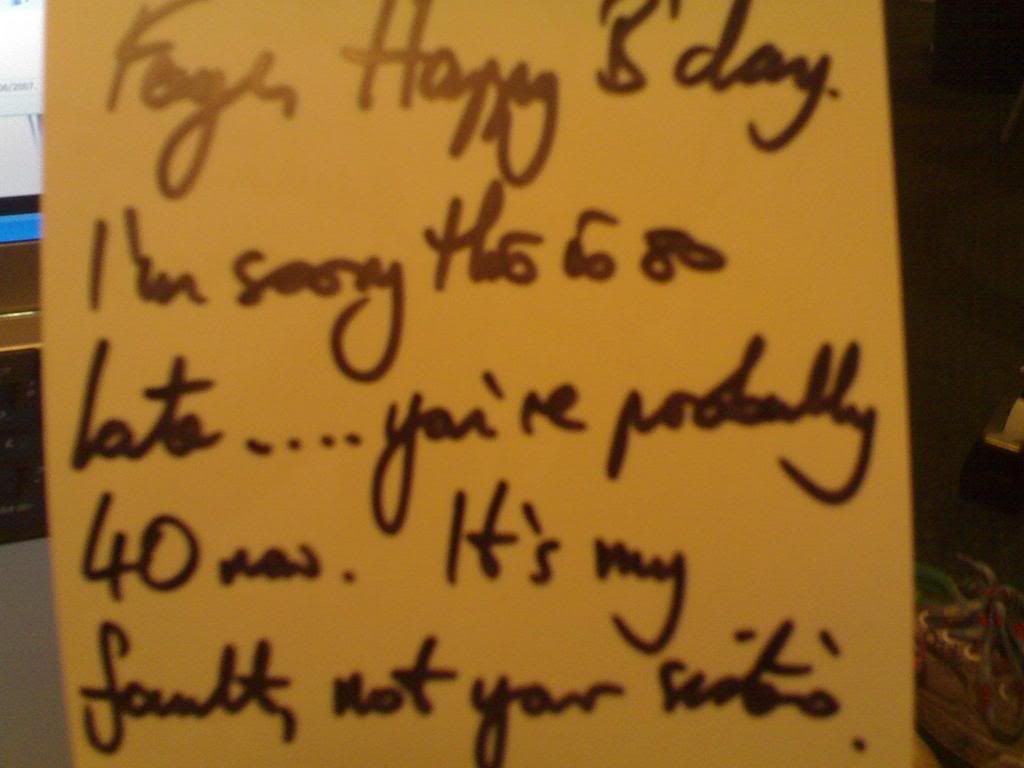 Faye, Happy B'day.
I'm sorry this is so
late.... you're probably
40 now. It's my
fault, not your sister's.
06/2007.